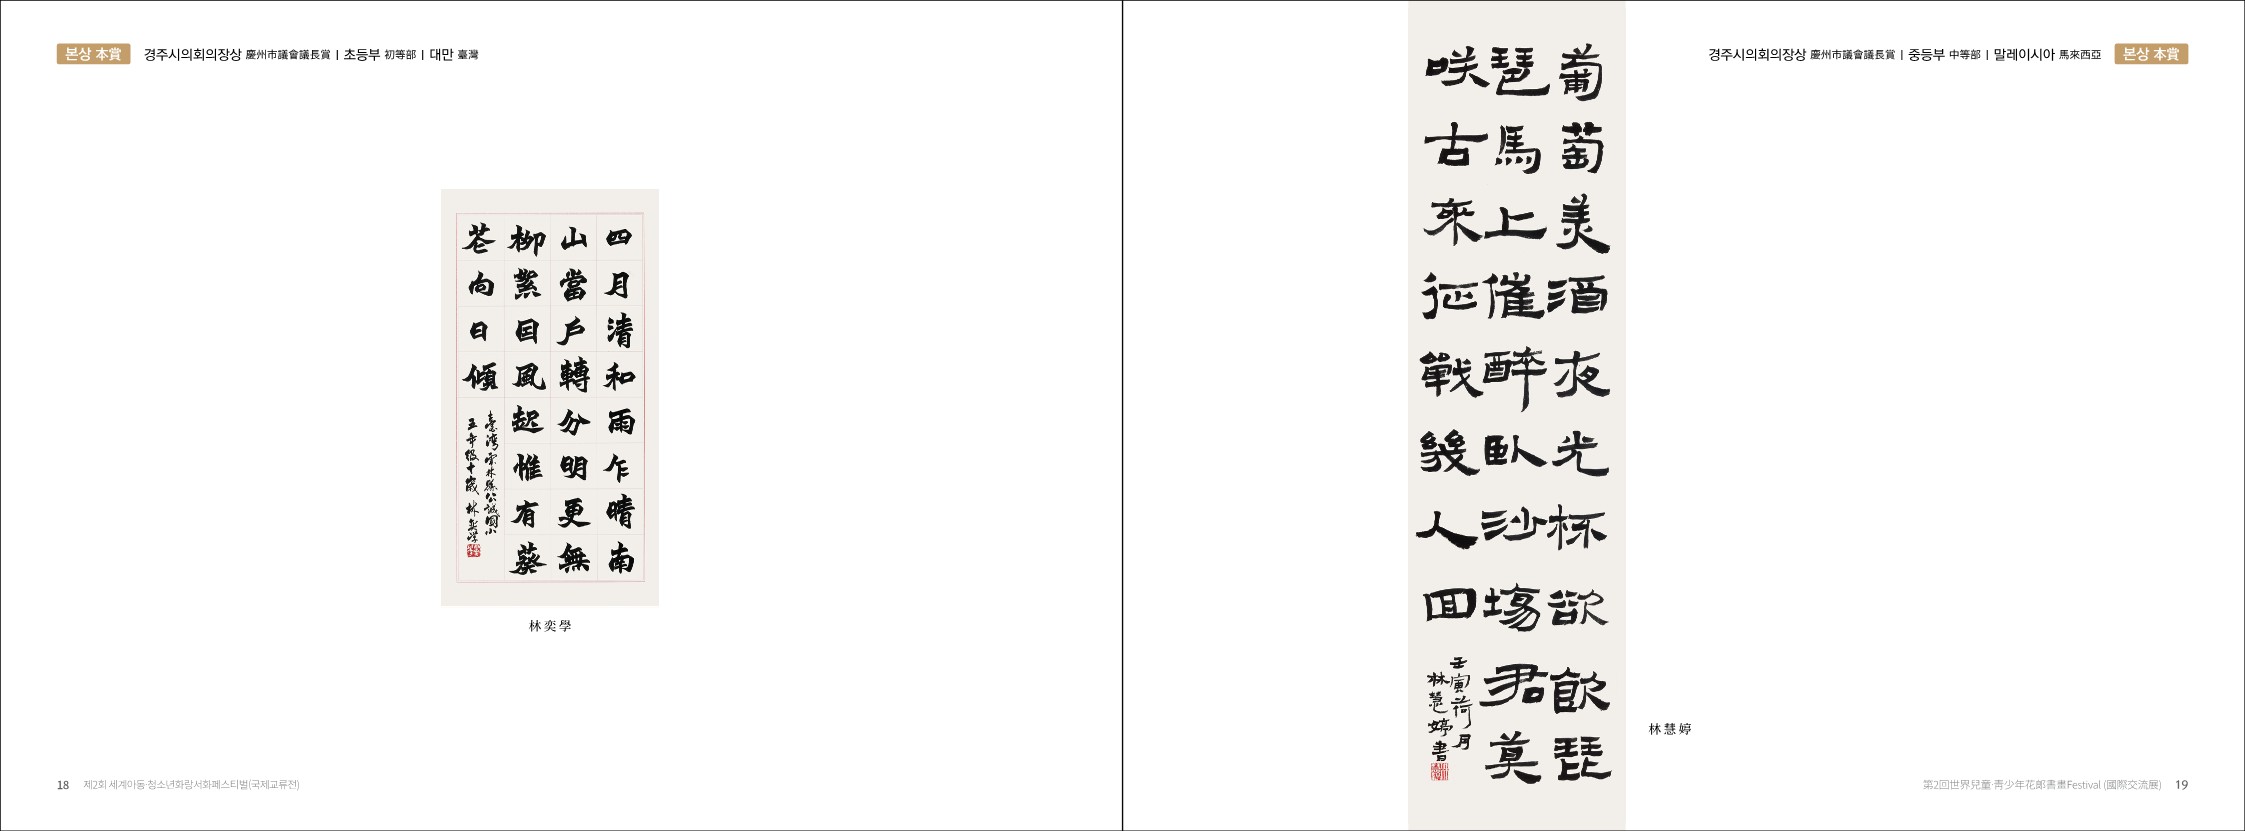 본상 本賞 경주시의회의장상 慶州市議會議長賞 | 초등부 初等部 | 대만 臺灣
四月清和雨乍晴南
山當戶轉分明更無
柳絮因風起惟有葵
花向日傾
臺灣雲林縣公誠國小
五年級十歲 林奕學
林奕學
18 제2회 세계아동·청소년화랑서화페스티벌(국제교류전)
경주시의회의장상 慶州市議會議長賞 | 중등부 中等部 | 말레이시아 馬來西亞 본상 本賞
葡萄美酒夜光杯欲飮琵
琶馬上催醉臥沙場君莫
咲古來征戰幾人回
壬寅荷月
林慧婷書
林慧婷
第2回世界兒童·靑少年花郞書畫Festival (國際交流展) 19